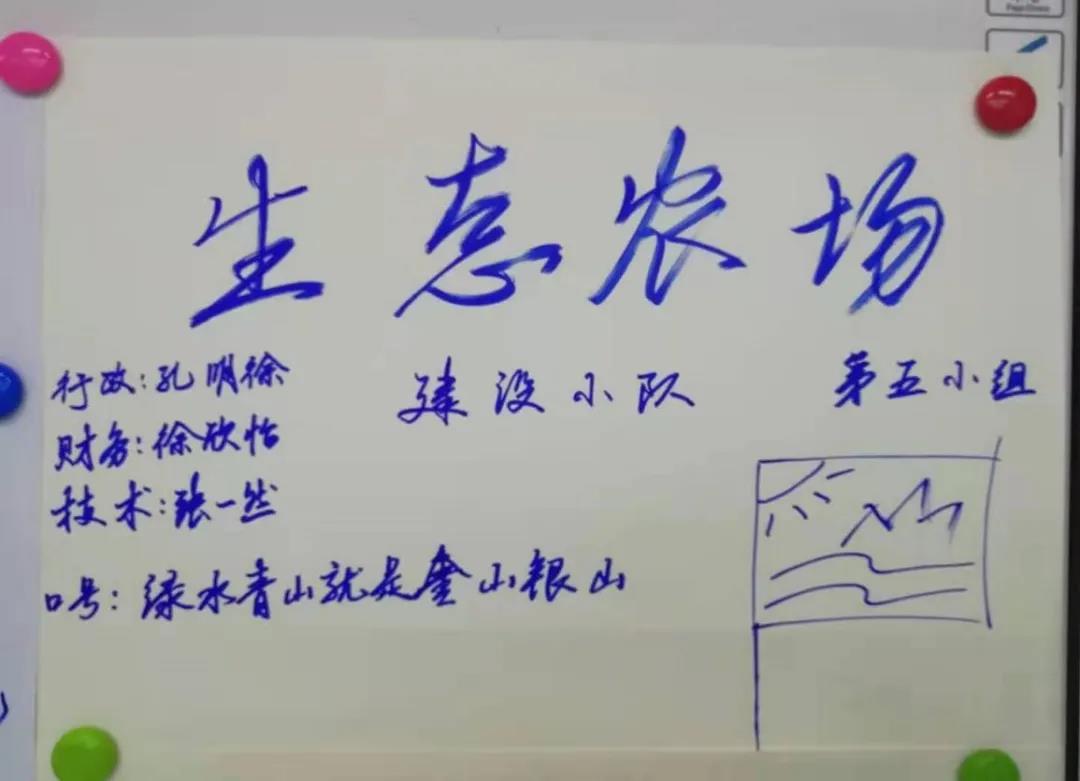 生态农场
建设小队
第五小组
行政：孔明徐
财务：徐欣怡
技术：张一然
口号：绿水青山就是金山银山